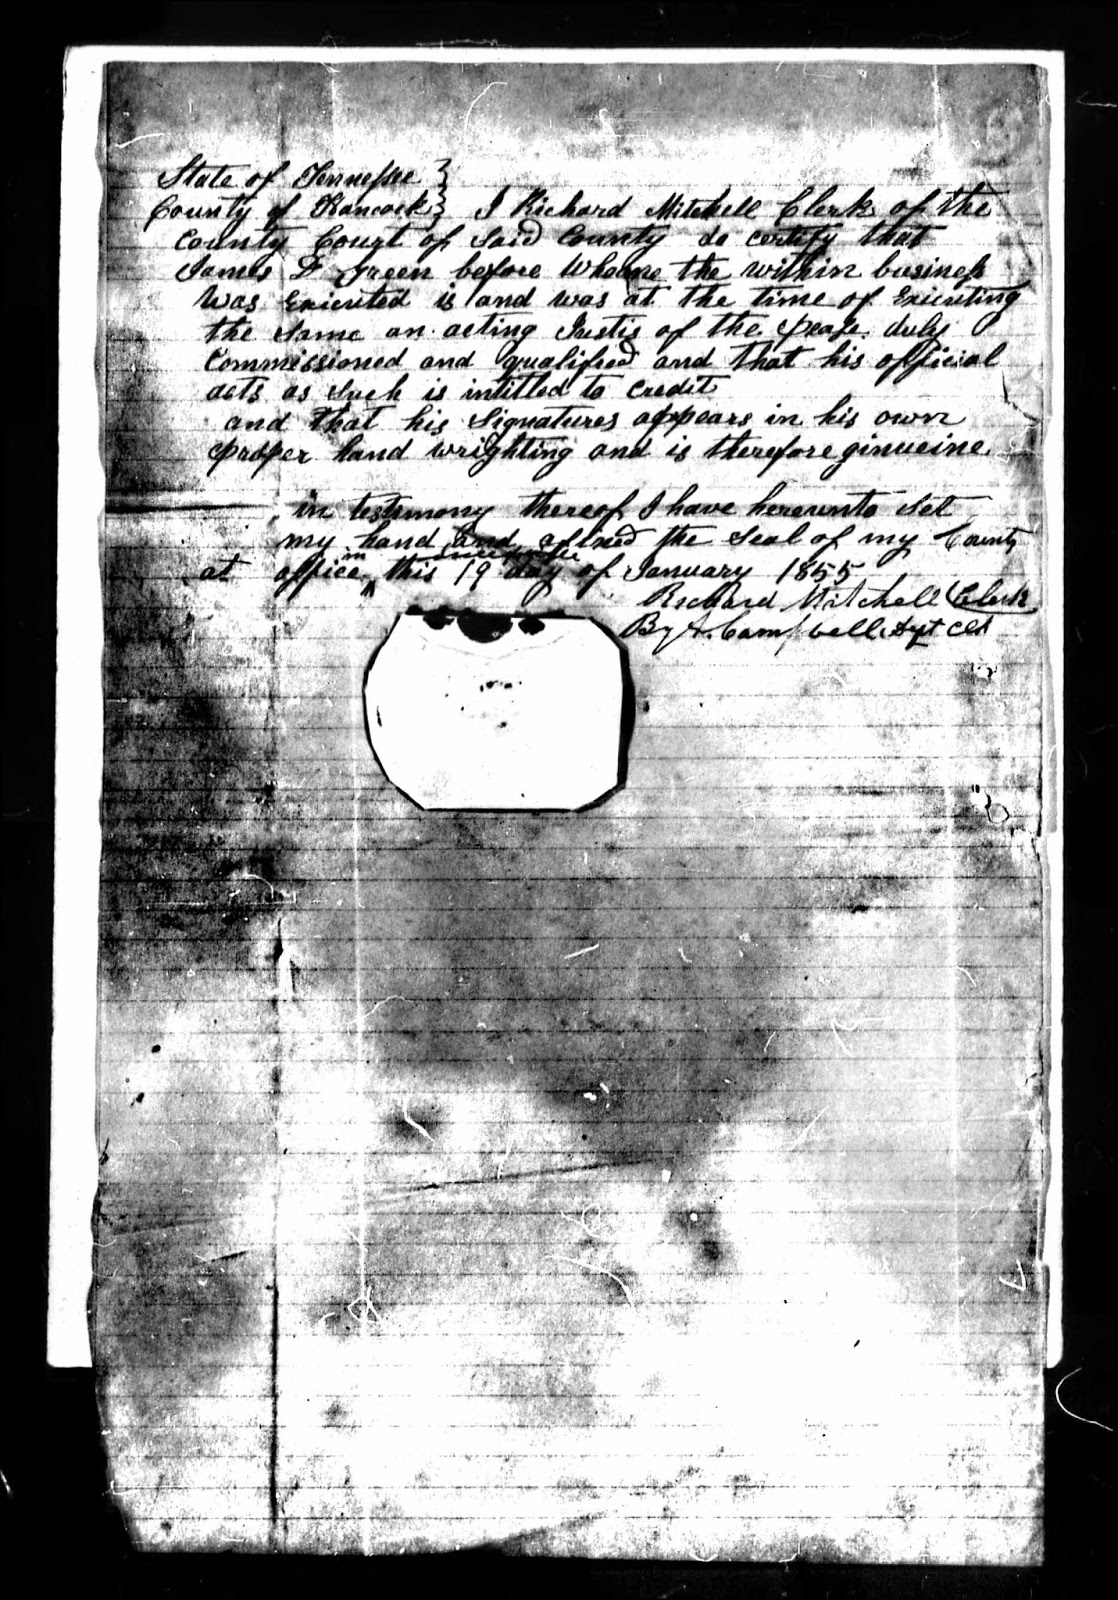 State of Tennessee }
County of Hancock } I Richard Mitchell Clerk of the
County Court of Said County do certify that
James D Green before Whome the within business
Was Executed is and was at the time of Executing
the Same an acting Justis of the pease duly
Commissioned and qualified and that his official
acts as Such is intitled to credit
and that his Signatures appears in his own
proper hand wrighting and is therefore ginueine
in testimony thereof I have hereunto Set
my hand and afixed the Seal of my County
at office in this 19 day of January 1855
Richard Mitchell Clerk
By A. Campbell Dpt Clk